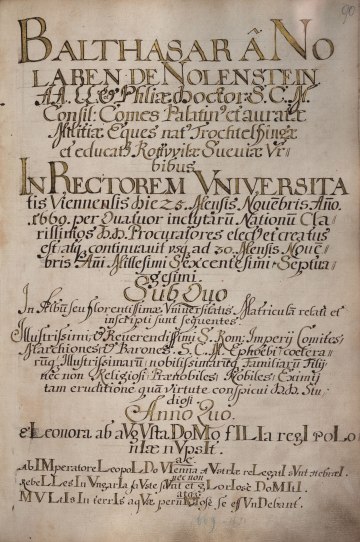 90
BALTHASAR â NO
LABEN DE NOLENSTEIN
AA. LL. & Philiæ Doctor S. C. M.
Consil: Comes Palatin et auratæ
Militiæ Eques nat Trochtelfingæ
et educat Rottwilæ Sueviæ Vr=
bibus
IN RECTOREM VNIVERSITA
tis Viennensis die 25. Mensis Novebris Ano.
1669. per Quatuor inclytarū Nationū Cla=
rissimos DD. Procuratores elect et creatus
est, ac continuavit usq ad 30. Mensis Nove=
bris Ani Millesimi Sexcentesimi Septua
gesimi
SUB QUO
In Albū seu florentissimæ Vniversitatis Matriculā relati et
inscripti sunt sequentes.
Illustrissimi, & Reverendissimi S. Rom: Imperij Comites,
Marchiones, & Barones, S. C. M. Ephoebi cœterā=
rūq Illustrissimarū nobilissimarūq Familiarū Filij
nec non Religiosi Prænobiles Nobiles, Eximij
tam eruditione quā Virtute conspicui DD. Stu=
diosi
Anno Quo.
eLeonora ab aVgVsta DoMo fILIa regI poLo
nIæ nVpsIt.
ac
ab IMperatore LeopoLDo VIenna aVstrIæ reLegatI sVnt Hebræi.
nec non
rebeLLes In VngarIa fVste sVnt et gLorIosè DoMItI.
atqȝ
MVLtIs In terrIs aqVæ se effVnDebant.